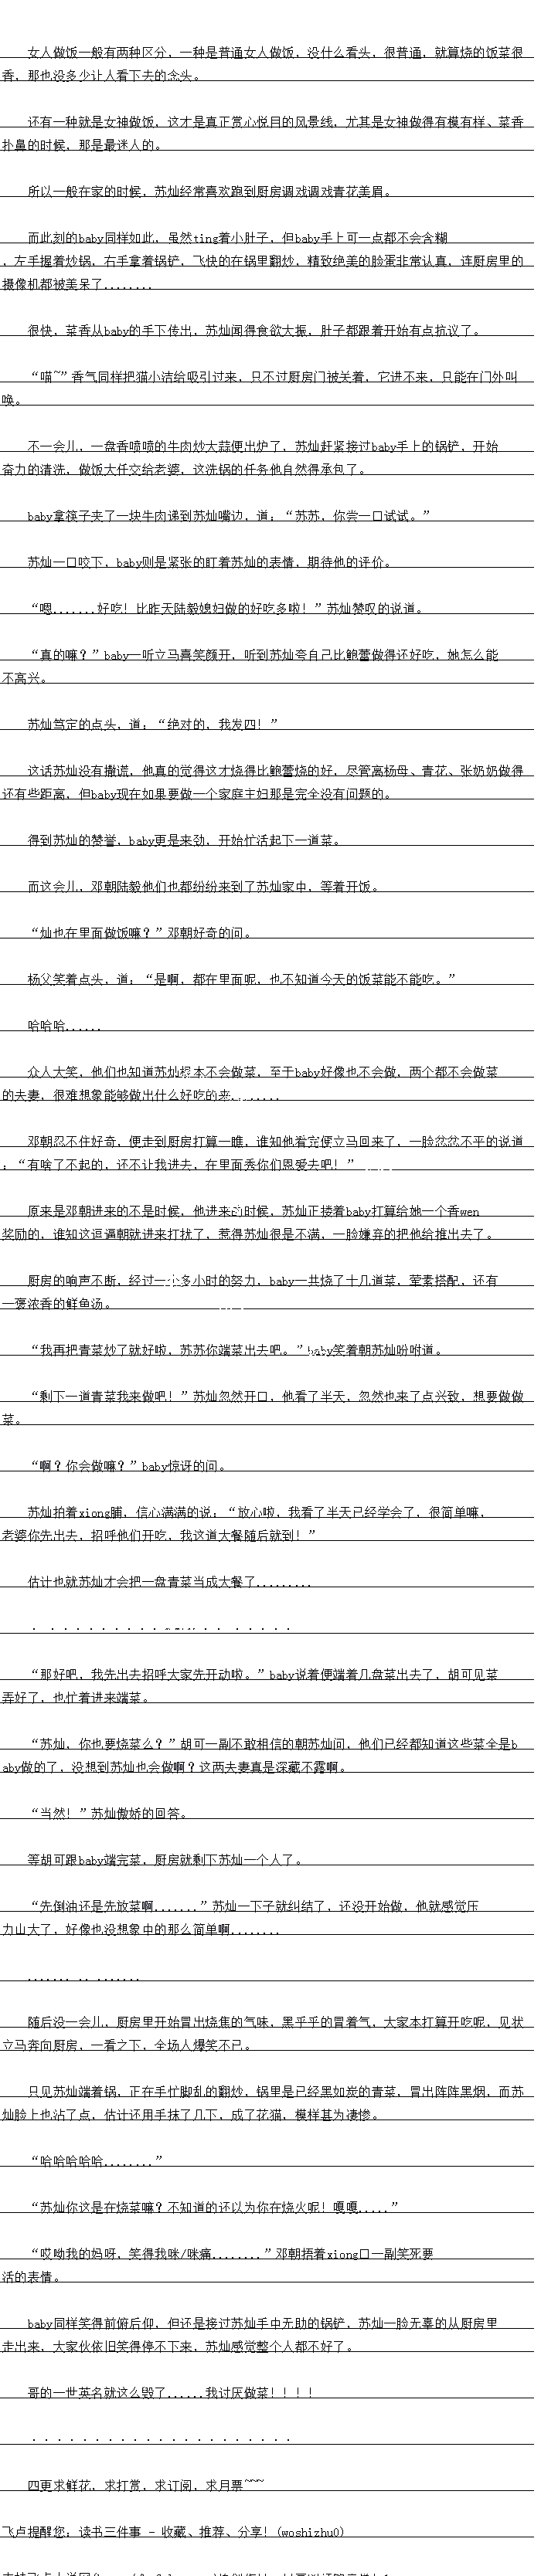 女人做饭一般有两种区分，一种是普通女人做饭，没什么看头，很普通，就算烧的饭菜很
香，那也没多少让人看下去的念头。
还有一种就是女神做饭，这才是真正赏心悦目的风景线，尤其是女神做得有模有样、菜香
扑鼻的时候，那是最迷人的。
所以一般在家的时候，苏灿经常喜欢跑到厨房调戏调戏青花美眉。
而此刻的baby同样如此，虽然ting着小肚子，但baby手上可一点都不会含糊
，左手握着炒锅，右手拿着锅铲，飞快的在锅里翻炒，精致绝美的脸蛋非常认真，连厨房里的
摄像机都被美呆了........
很快，菜香从baby的手下传出，苏灿闻得食欲大振，肚子都跟着开始有点抗议了。
“喵~”香气同样把猫小洁给吸引过来，只不过厨房门被关着，它进不来，只能在门外叫
唤。
不一会儿，一盘香喷喷的牛肉炒大蒜便出炉了，苏灿赶紧接过baby手上的锅铲，开始
奋力的清洗，做饭大任交给老婆，这洗锅的任务他自然得承包了。
baby拿筷子夹了一块牛肉递到苏灿嘴边，道：“苏苏，你尝一口试试。”
苏灿一口咬下，baby则是紧张的盯着苏灿的表情，期待他的评价。
“嗯.......好吃！比昨天陆毅媳妇做的好吃多啦！”苏灿赞叹的说道。
“真的嘛？”baby一听立马喜笑颜开，听到苏灿夸自己比鲍蕾做得还好吃，她怎么能
不高兴。
苏灿笃定的点头，道：“绝对的，我发四！”
这话苏灿没有撒谎，他真的觉得这才烧得比鲍蕾烧的好，尽管离杨母、青花、张奶奶做得
还有些距离，但baby现在如果要做一个家庭主妇那是完全没有问题的。
得到苏灿的赞誉，baby更是来劲，开始忙活起下一道菜。
而这会儿，邓朝陆毅他们也都纷纷来到了苏灿家中，等着开饭。
“灿也在里面做饭嘛？”邓朝好奇的问。
杨父笑着点头，道：“是啊，都在里面呢，也不知道今天的饭菜能不能吃。”
哈哈哈......
众人大笑，他们也知道苏灿根本不会做菜，至于baby好像也不会做，两个都不会做菜
的夫妻，很难想象能够做出什么好吃的来........
邓朝忍不住好奇，便走到厨房打算一瞧，谁知他看完便立马回来了，一脸忿忿不平的说道
：“有啥了不起的，还不让我进去，在里面秀你们恩爱去吧！”
原来是邓朝进来的不是时候，他进来的时候，苏灿正搂着baby打算给她一个香wen
奖励的，谁知这逗逼朝就进来打扰了，惹得苏灿很是不满，一脸嫌弃的把他给推出去了。
厨房的响声不断，经过一个多小时的努力，baby一共烧了十几道菜，荤素搭配，还有
一煲浓香的鲜鱼汤。
“我再把青菜炒了就好啦，苏苏你端菜出去吧。”baby笑着朝苏灿吩咐道。
“剩下一道青菜我来做吧！”苏灿忽然开口，他看了半天，忽然也来了点兴致，想要做做
菜。
“啊？你会做嘛？”baby惊讶的问。
苏灿拍着xiong脯，信心满满的说：“放心啦，我看了半天已经学会了，很简单嘛，
老婆你先出去，招呼他们开吃，我这道大餐随后就到！”
估计也就苏灿才会把一盘青菜当成大餐了.........
“那好吧，我先出去招呼大家先开动啦。”baby说着便端着几盘菜出去了，胡可见菜
弄好了，也忙着进来端菜。
“苏灿，你也要烧菜么？”胡可一副不敢相信的朝苏灿问，他们已经都知道这些菜全是b
aby做的了，没想到苏灿也会做啊？这两夫妻真是深藏不露啊。
“当然！”苏灿傲娇的回答。
等胡可跟baby端完菜，厨房就剩下苏灿一个人了。
“先倒油还是先放菜啊.......”苏灿一下子就纠结了，还没开始做，他就感觉压
力山大了，好像也没想象中的那么简单啊........
....... .. .......
随后没一会儿，厨房里开始冒出烧焦的气味，黑乎乎的冒着气，大家本打算开吃呢，见状
立马奔向厨房，一看之下，全场人爆笑不已。
只见苏灿端着锅，正在手忙脚乱的翻炒，锅里是已经黑如炭的青菜，冒出阵阵黑烟，而苏
灿脸上也沾了点，估计还用手抹了几下，成了花猫，模样甚为凄惨。
“哈哈哈哈哈........”
“苏灿你这是在烧菜嘛？不知道的还以为你在烧火呢！嘎嘎.....”
“哎呦我的妈呀，笑得我咪/咪痛........”邓朝捂着xiong口一副笑死要
活的表情。
baby同样笑得前俯后仰，但还是接过苏灿手中无助的锅铲，苏灿一脸无辜的从厨房里
走出来，大家伙依旧笑得停不下来，苏灿感觉整个人都不好了。
哥的一世英名就这么毁了......我讨厌做菜！！！！
．．．．．．．．．．．．．．．．．．．．．
四更求鲜花，求打赏，求订阅，求月票~~~
飞卢提醒您：读书三件事 - 收藏、推荐、分享！(woshizhu0)